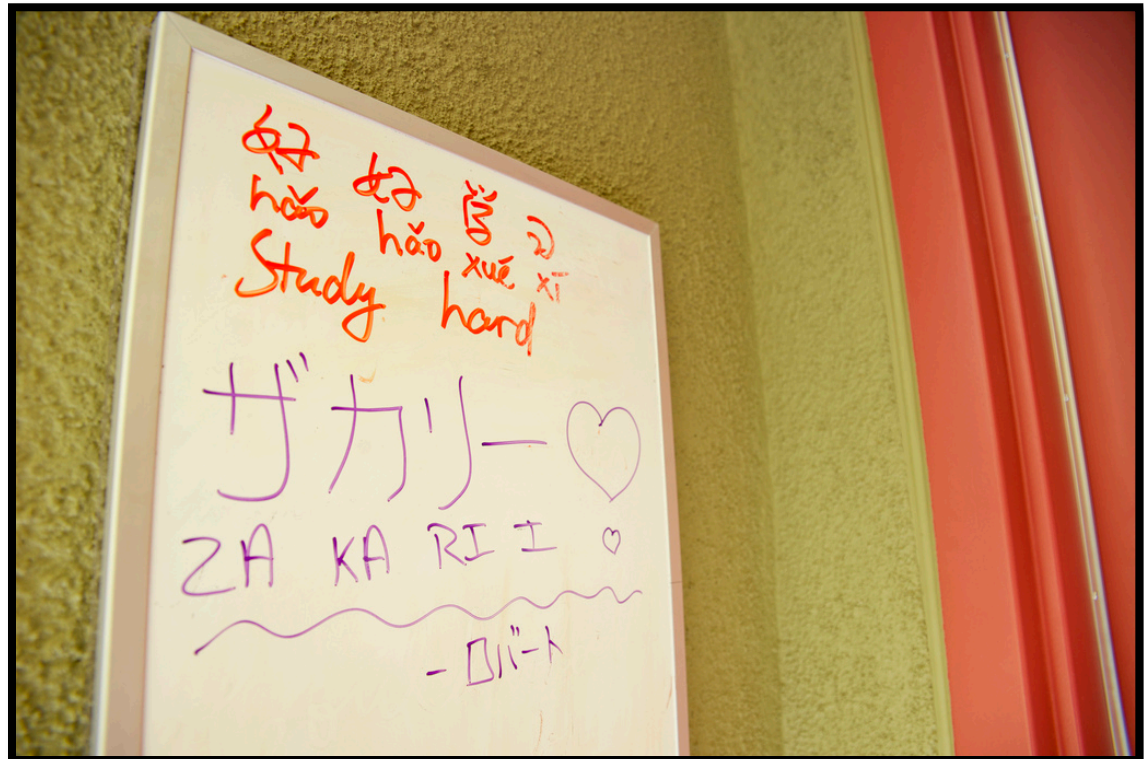 好好学习
hǎo hǎo xué xí
Study hard
ザカリー♡
ZA KA RI I ♡
- ロバート